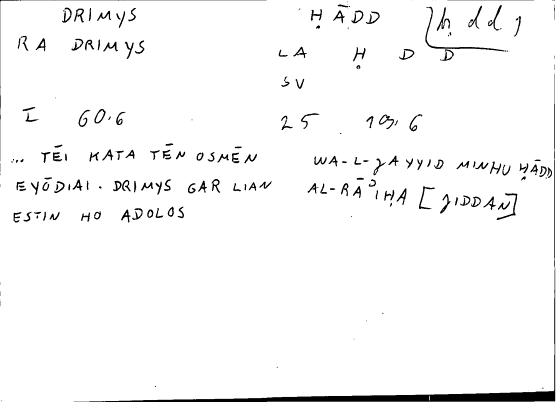 DRIMYS
RA DRIMYS
I 60.6
... TĒI KATA TĒN OSMĒN
EYŌDIAI. DRIMYS GAR LIAN
ESTIN HO ADOLOS
ḤĀDD
ḥdd1
LA Ḥ D D
SV
25 109.6
WA-L-ǦAYYID MINHU ḤĀDD
AL-RĀʾIḤA [ǦIDDAN]